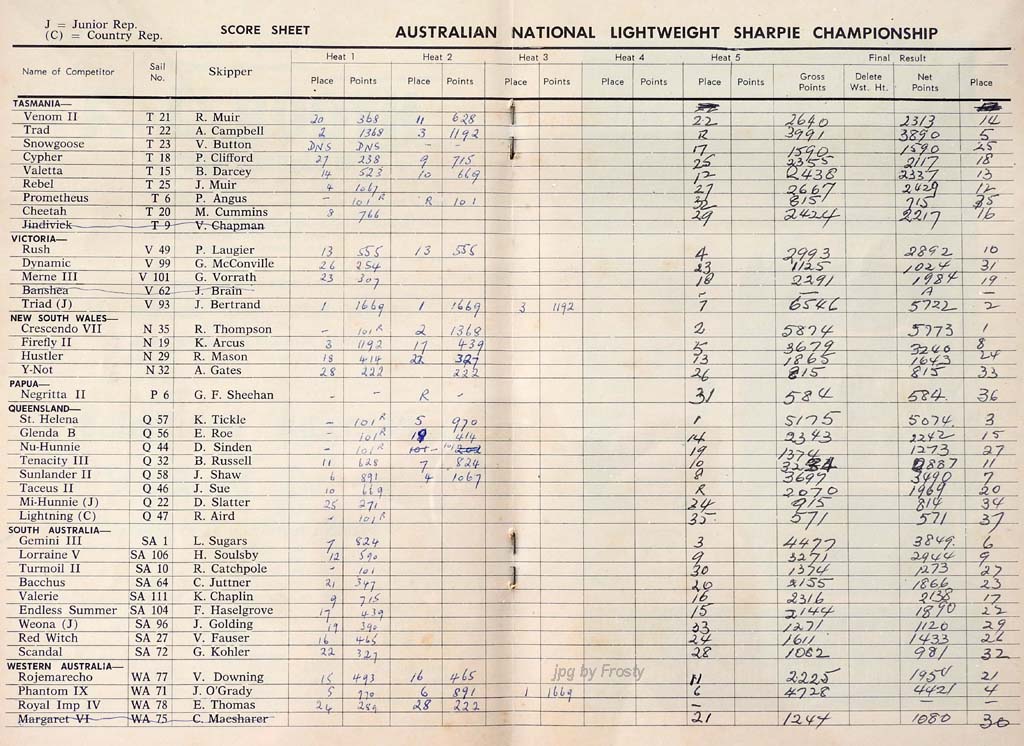 J = Junior Rep.
(C) = Country Rep.
SCORE SHEET AUSTRALIAN NATIONAL LIGHTWEIGHT SHARPIE CHAMPIONSHIP
Heat 1 Heat 2 Heat 3 Heat 4 Heat 5 Final Result
Name of Competitor Sail No. Skipper Place Points Place Points Place Points Place Points Place Points Gross Points Delete Wst. Ht. Net Points Place
TASMANIA—
Venom II T 21 R. Muir 20 368 11 628 22 2640 2313 14
Trad T 22 A. Campbell 2 1368 3 1192 R 3991 3890 5
Snowgoose T 23 V. Button DNS DNS - - 17 1590 1590 25
Cypher T 18 P. Clifford 27 238 9 715 25 2355 2117 18
Valetta T 15 B. Darcey 14 523 10 669 12 2438 2337 13
Rebel T 25 J. Muir 4 1067 27 2667 2429 12
Prometheus T 6 P. Angus - 101 R R 101 32 815 715
Cheetah T 20 M. Cummins 8 766 29 2424 2217 16
Jindivick T 9 V. Chapman
VICTORIA—
Rush V 49 P. Laugier 13 555 13 555 4 2993 2892 10
Dynamic V 99 G. McConville 26 254 23 1125 1024 31
Merne III V 101 G. Vorrath 23 307 18 2291 1984 19
Banshea V 62 J. Brain - - A -
Triad (J) V 93 J. Bertrand 1 1669 1 1669 3 1192 7 6546 5722 2
NEW SOUTH WALES—
Crescendo VII N 35 R. Thompson - 101 R 2 1368 2 5874 5773 1
Firefly II N 19 K. Arcus 3 1192 17 439 5 3679 3240 8
Hustler N 29 R. Mason 18 414 22 327 13 1865 1643 24
Y-Not N 32 A. Gates 28 222 222 26 815 815 33
PAPUA—
Negritta II P 6 G. F. Sheehan - - R - 31 584 584. 36
QUEENSLAND—
St. Helena Q 57 K. Tickle - 101 R 5 970 1 5175 5074 3
Glenda B Q 56 E. Roe - 101 R 414 14 2343 2242 15
Nu-Hunnie Q 44 D. Sinden - 101 R 101 - 101 202 19 1374 1273 27
Tenacity III Q 32 B. Russell 11 628 7 824 10 2887 11
Sunlander II Q 58 J. Shaw 6 891 4 1067 8 3697 3490 7
Taceus II Q 46 J. Sue 10 669 R 2070 1969 20
Mi-Hunnie (J) Q 22 D. Slatter 25 271 24 915 814 34
Lightning (C) Q 47 R. Aird - 101 R 35 571 571 37
SOUTH AUSTRALIA—
Gemini III SA 1 L. Sugars 7 824 3 4477 3849. 6
Lorraine V SA 106 H. Soulsby 12 590 9 3271 2944 9
Turmoil II SA 10 R. Catchpole - 101 30 1374 1273 27
Bacchus SA 64 C. Juttner 21 347 20 2155 1866 23
Valerie SA 111 K. Chaplin 9 715 16 2316 2138 17
Endless Summer SA 104 F. Haselgrove 17 439 15 2144 1890 22
Weona (J) SA 96 J. Golding 19 390 33 1271 1120 29
Red Witch SA 27 V. Fauser 16 465 24 1611 1433 26
Scandal SA 72 G. Kohler 22 327 28 1062 981 32
WESTERN AUSTRALIA—
Rojemarecho WA 77 V. Downing 15 493 16 465 11 2225 21
Phantom IX WA 71 J. O'Grady 5 970 6 891 1 1669 6 4728 4421 4
Royal Imp IV WA 78 E. Thomas 24 289 28 222 - - -
Margaret VI WA 75 C. Macsharer 21 1247 1080 30
jpg by Frosty